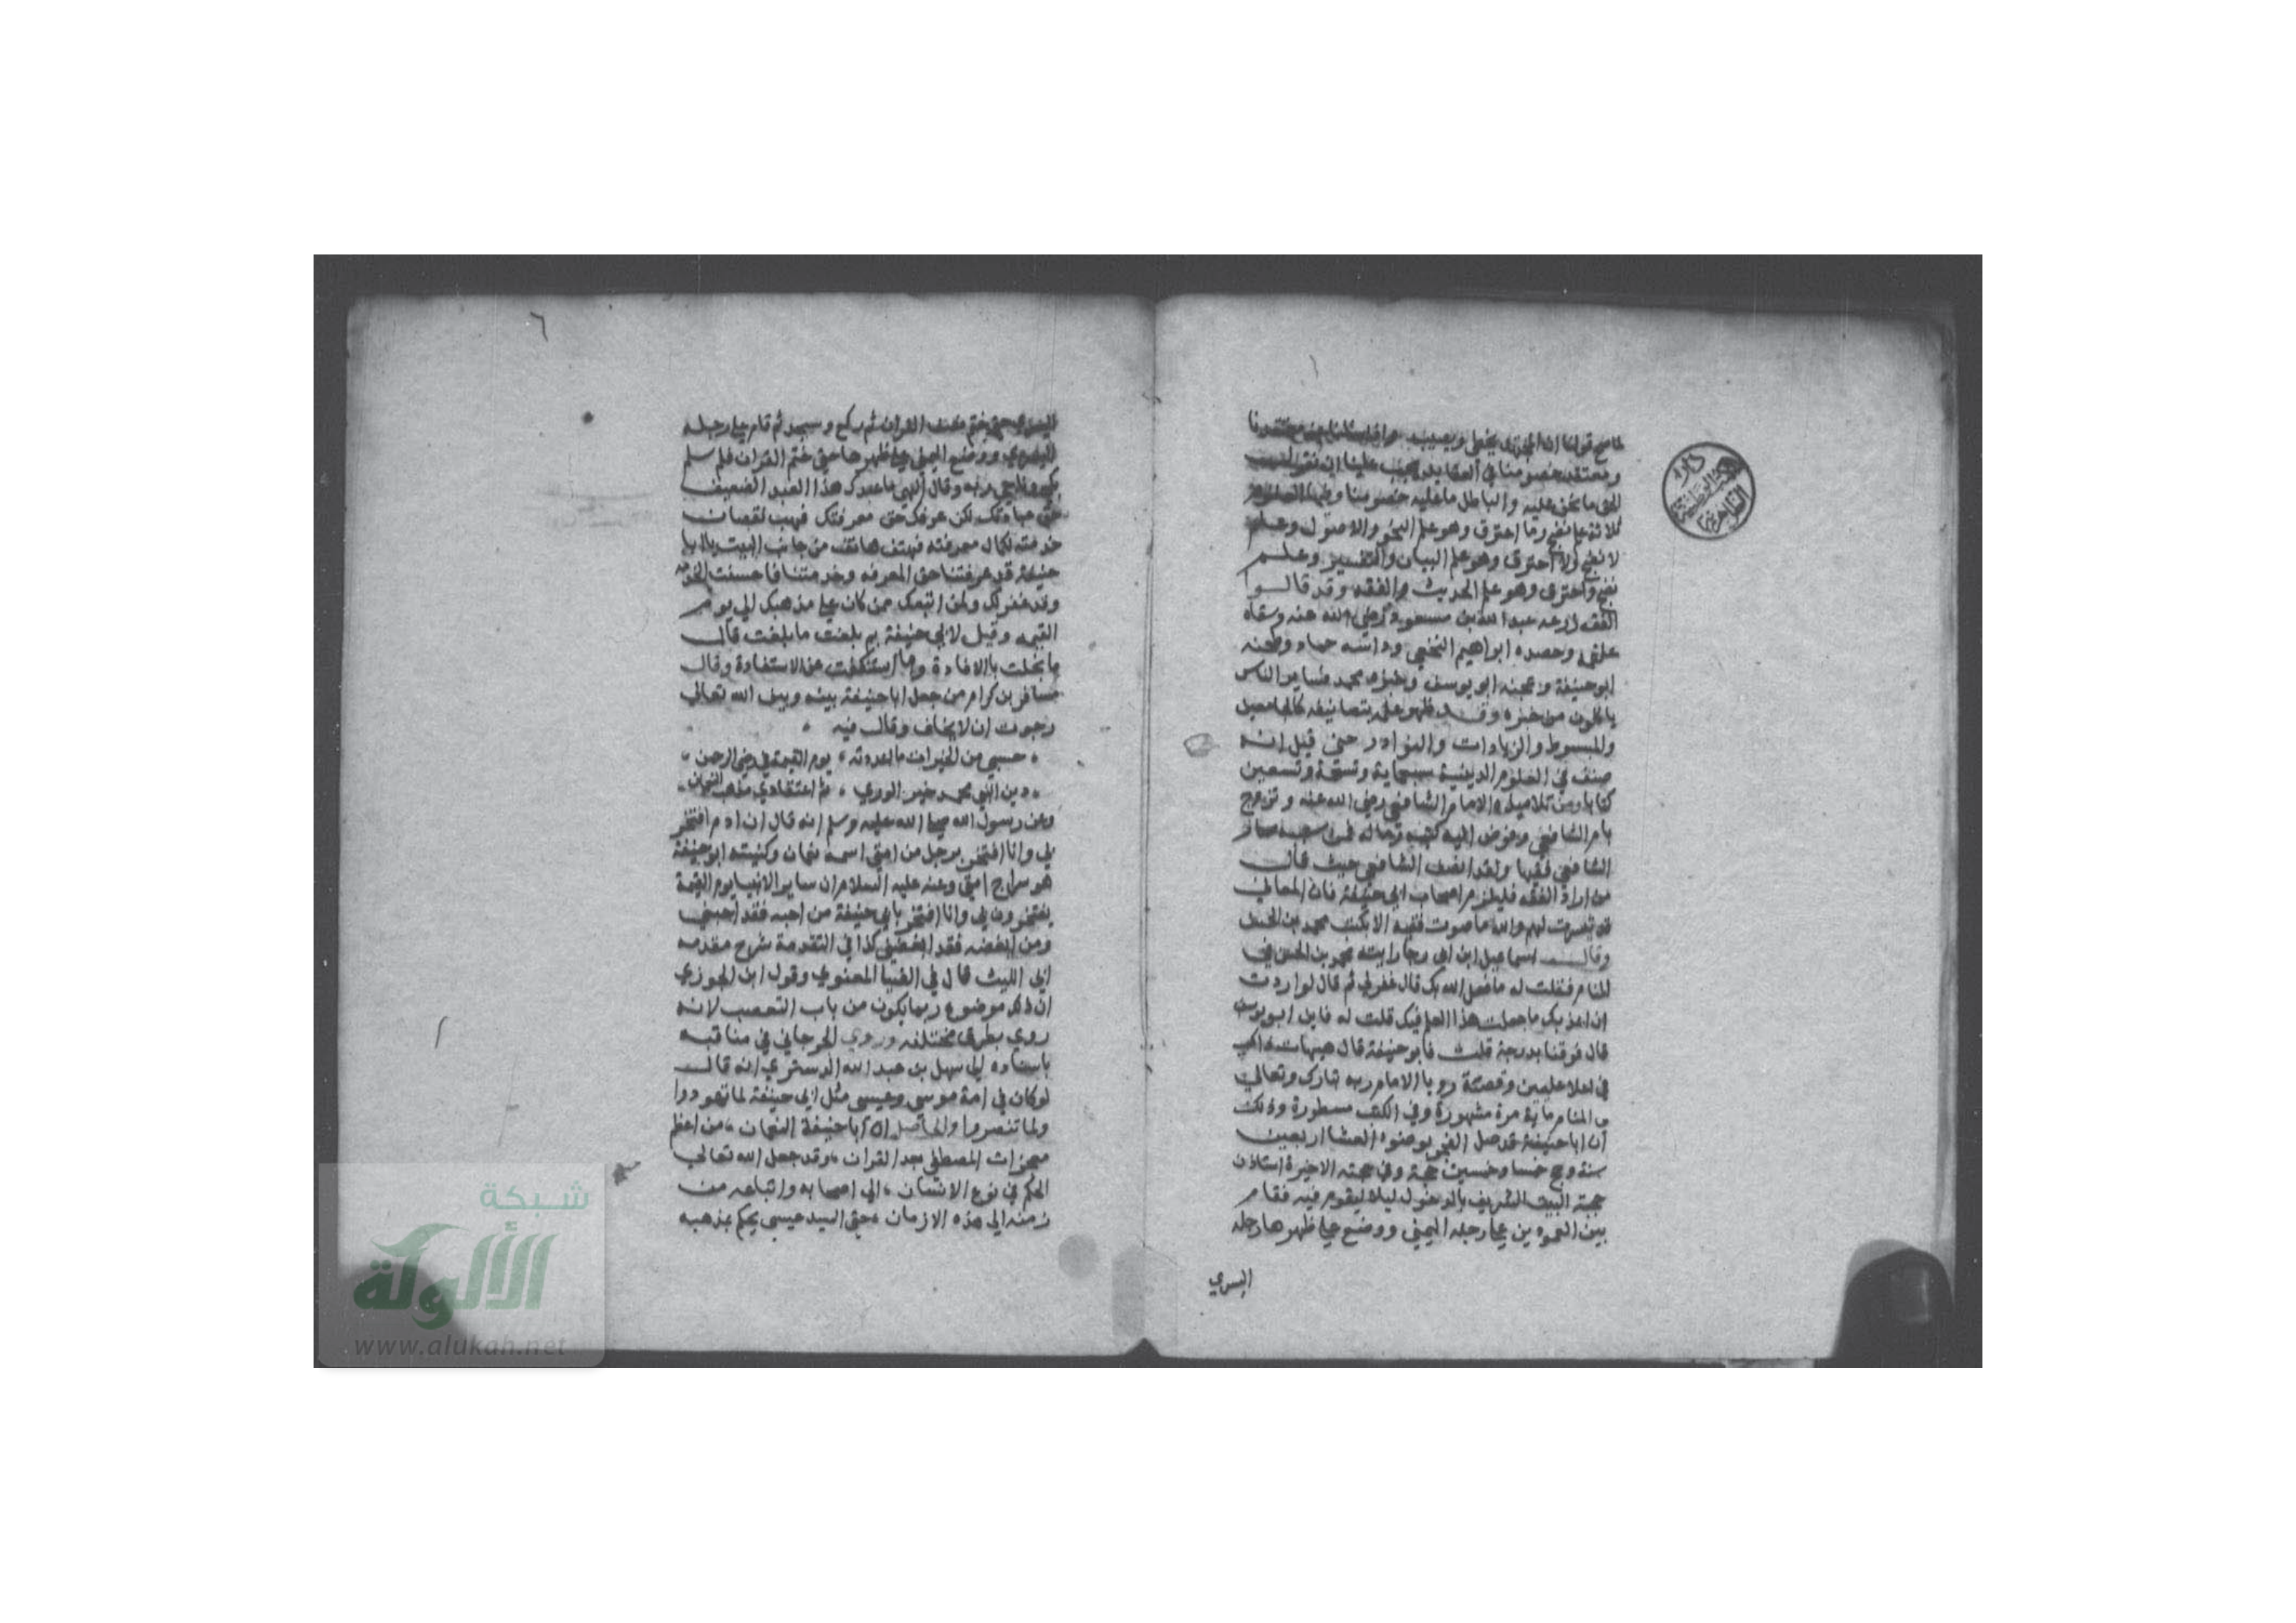 لما صح قولنا ان المجتهد يخطي ويصيب واذا سئلنا عن معتقدنا
ومعتقد خصومنا في العقايد يجب علينا ان نقول
الحق ما نحن عليه والباطل ما عليه خصومنا
ثلاثة علم نضج وما احترق وهو علم النحو والاصول وعلم
لا نضج ولا احترق وهو علم البيان والتفسير وعلم
نضج واحترق وهو علم الحديث والفقه وقد قالوا
الفقه زرعه عبد الله بن مسعود رضي الله عنه وسقاه
علقمة وحصده ابراهيم النخعي وداسه حماد وطحنه
ابو حنيفة وعجنه ابو يوسف وخبزه محمد فساير الناس
ياكلون من خبزه وقد ظهر علمه بتصانيفه كالجامعين
والمبسوط والزيادات والنوادر حتى قيل انه
صنف في العلوم الدينية سبعماية وتسعة وتسعين
كتابا ومن تلاميذه الامام الشافعي رضي الله عنه وتزوج
بام الشافعي وفوض اليه كتبه وماله فبسببه صار
الشافعي فقيها ولقد انصف الشافعي حيث قال
من اراد الفقه فليلزم اصحاب ابي حنيفة فان المعاني
قد تيسرت لهم والله ما صرت فقيها الا بكتب محمد بن الحسن
وقال اسماعيل ابن ابي رجا رايت محمد بن الحسن في
المنام فقلت له ما فعل الله بك قال غفر لي ثم قال لو اردت
ان اعذبك ما جعلت هذا العلم فيك قلت له فاين ابو يوسف
قال فوقنا بدرجة قلت فابو حنيفة قال هيهات ذاك
في اعلا عليين وقصة رويا الامام ربه تبارك وتعالى
في المنام ماية مرة مشهورة وفي الكتب مسطورة وذلك
ان ابا حنيفة قد صلى الفجر بوضوء العشا اربعين
سنة وحج خمسا وخمسين حجة وفي حجته الاخيرة استاذن
حجبة البيت الشريف بالدخول ليلا ليقوم فيه فقام
بين العمودين على رجله اليمني ووضع على ظهرها رجله
اليسري
٦
اليسري حتى ختم نصف القران ثم ركع وسجد ثم قام على رجله
اليسري ووضع اليمني على ظهرها حتى ختم القران فلما سلم
بكى وناجى ربه وقال الهي ما عبدك هذا العبد الضعيف
حق عبادتك لكن عرفك حق معرفتك فهب نقصان
خدمته لكمال معرفته فهتف هاتف من جانب البيت يا ابا
حنيفة قد عرفتنا حق المعرفه وخدمتنا فاحسنت الخدمه
وقد غفر لك ولمن اتبعك ممن كان على مذهبك الي يوم
القيمه وقيل لابي حنيفة بم بلغت ما بلغت قال
ما بخلت بالافادة وما استنكفت عن الاستفادة وقال
مسافر بن كرام من جعل ابا حنيفة بينه وبين الله تعالى
رجوت ان لا يخاف وقال فيه
حسبي من الخيرات ما اعددته يوم القيمة في رضى الرحمن
دين النبي محمد خير الوري ثم اعتقادي مذهب النعمان
وعن رسول الله صلى الله عليه وسلم انه قال ان ادم افتخر
بي وانا افتخر برجل من امتي اسمه نعمان وكنيته ابو حنيفة
هو سراج امتي وعنه عليه السلام ان ساير الانبيا يوم القيمة
يفتخرون بي وانا افتخر بابي حنيفة من احبه فقد احبني
ومن ابغضه فقد ابغضني كذا في التقدمة شرح مقدمه
ابي الليث قال في الضيا المعنوي وقول ابن الجوزي
ان ذلك موضوع ربما يكون من باب التعصب لانه
روي بطرق مختلفه وروي الجرجاني في مناقبه
باسناده الى سهل بن عبد الله التستري انه قال
لو كان في امة موسي وعيسي مثل ابي حنيفة لما تهودوا
ولما تنصروا والحاصل ان ابا حنيفة النعمان من اعظم
معجزات المصطفى بعد القران وقد جعل الله تعالى
الحكم في نوع الانسان الي اصحابه واتباعه من
زمنه الي هذه الازمان حتى السيد عيسي يحكم بمذهبه
شبكة
الألوكة
www.alukah.net